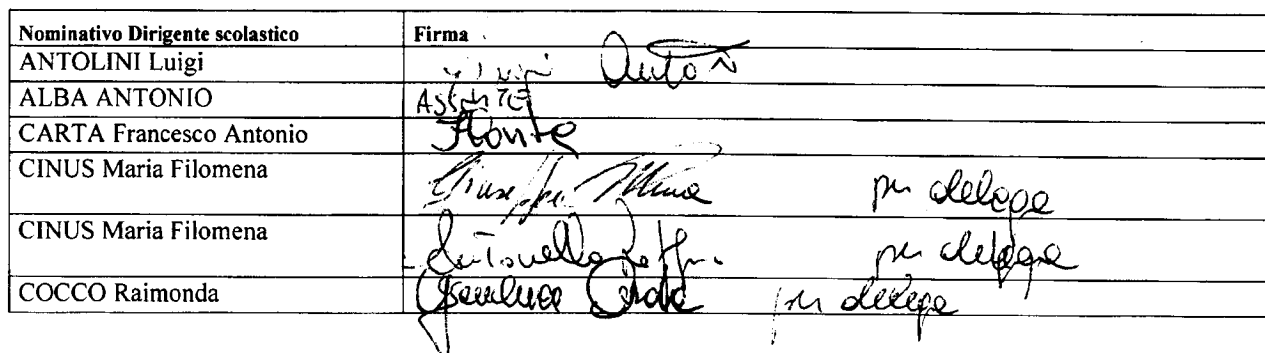 Nominativo Dirigente scolastico Firma
ANTOLINI Luigi
ALBA ANTONIO ASSENTE
CARTA Francesco Antonio
CINUS Maria Filomena per delega
CINUS Maria Filomena Antonella per delega
COCCO Raimonda Gianluca per delega